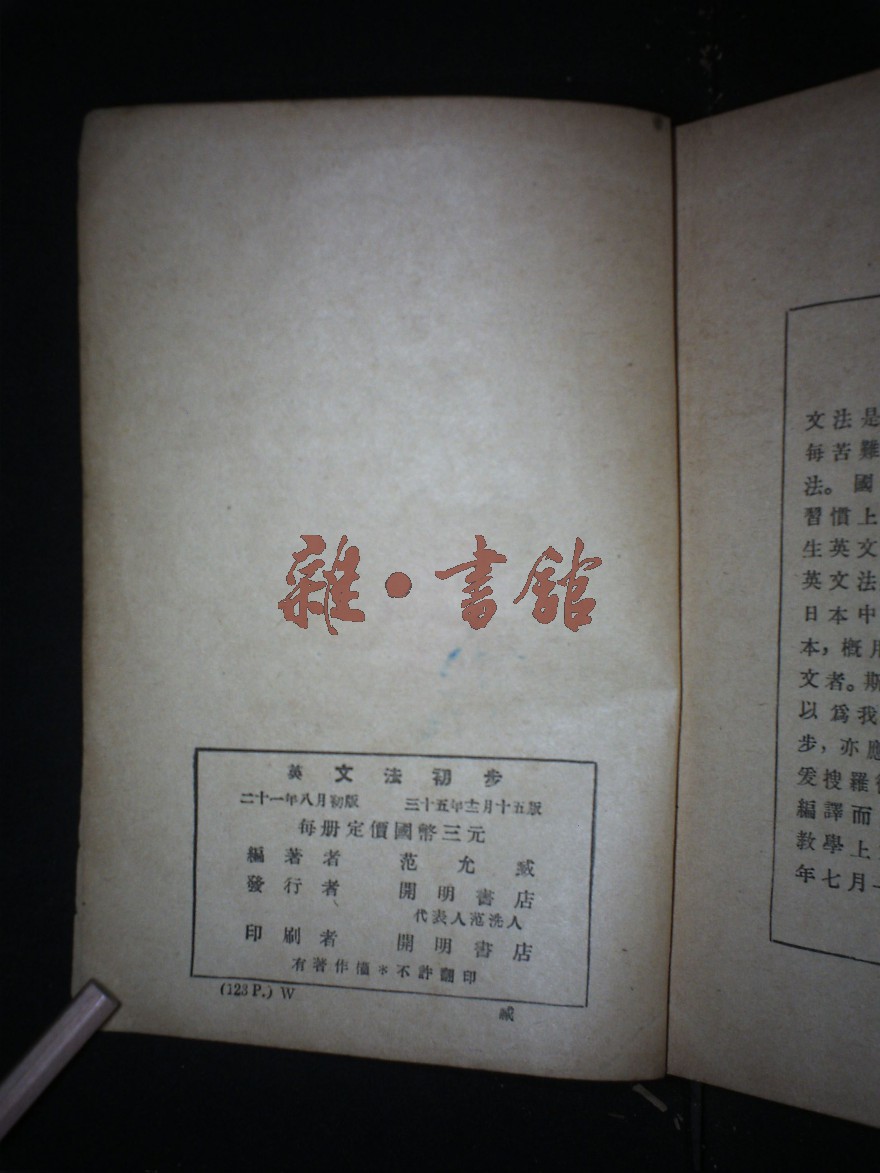 雜·書館
英文法初步
二十一年八月初版 三十五年十二月十五版
每册定價國幣三元
編著者 范允臧
發行者 開明書店
代表人范洗人
印刷者 開明書店
有著作權*不許翻印
(123 P.) W
臧
文法是
每苦難
法。國
習慣上
生英文
英文法
日本中
本，概用
文者。斯
以爲我
步，亦應
爰搜羅
編譯而
教學上
年七月